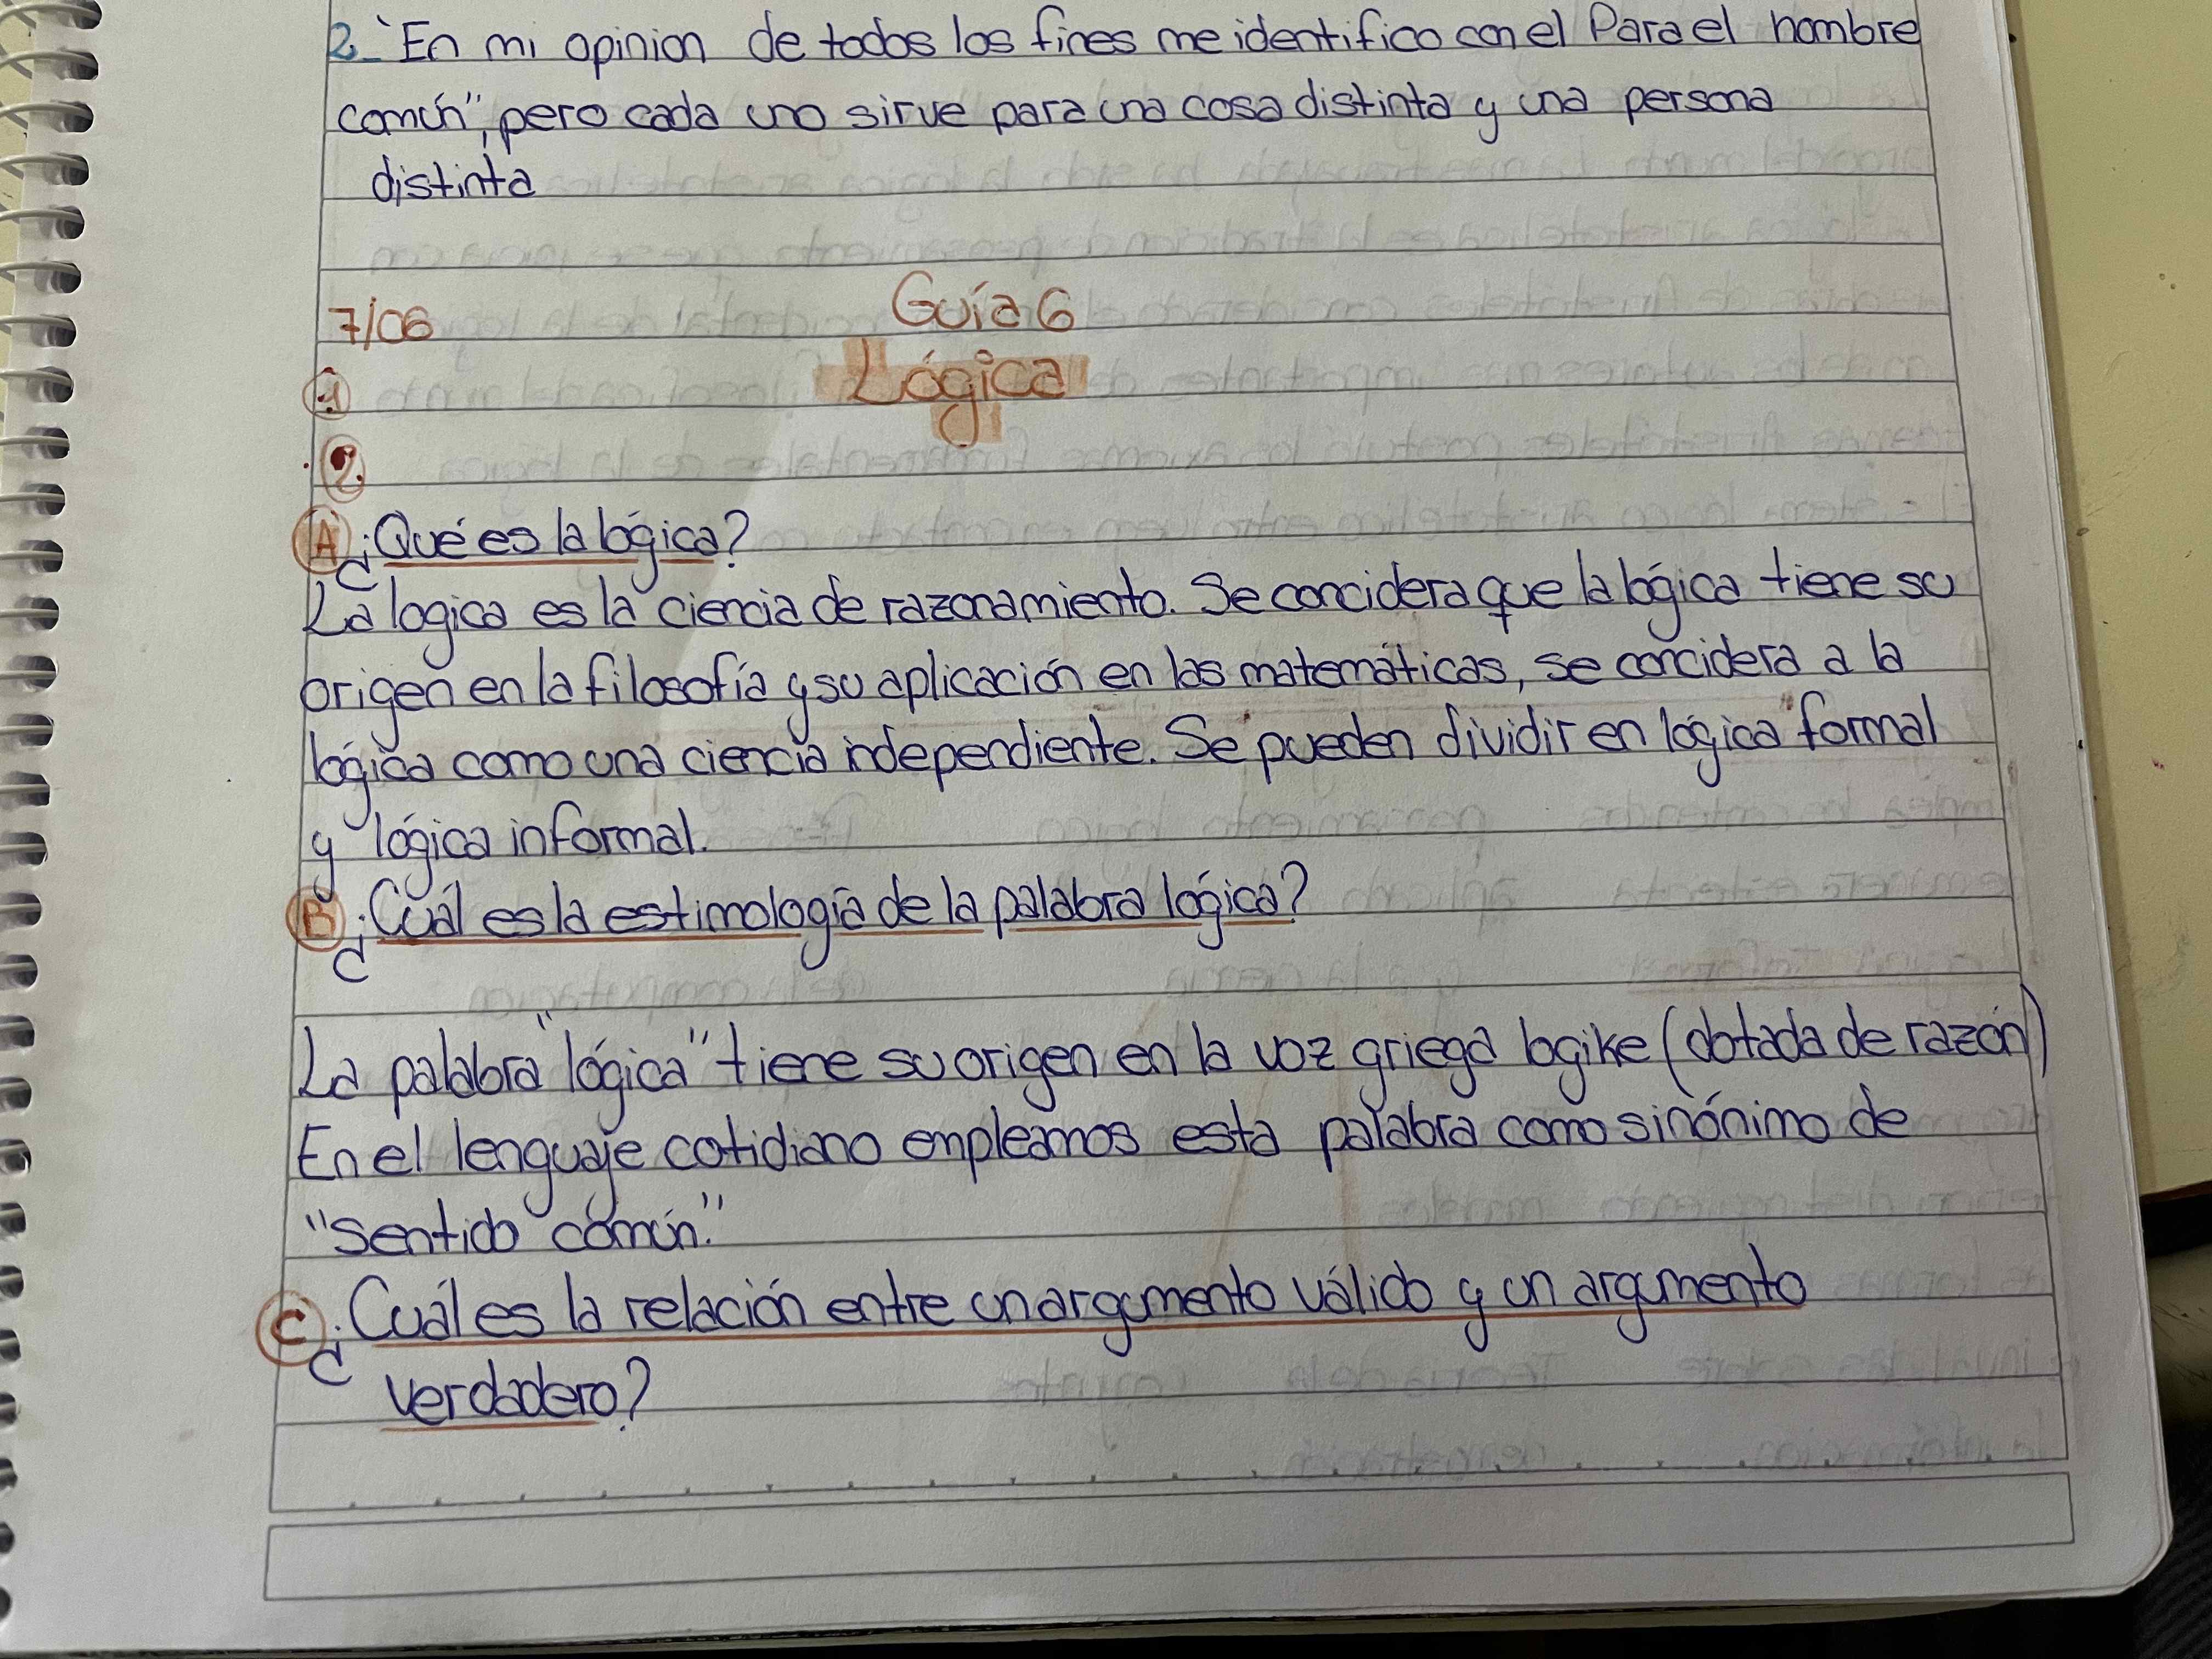 2- "En mi opinion de todos los fines me identifico con el Para el hombre
común", pero cada uno sirve para una cosa distinta y una persona
distinta
Guía 6
7/06
Lógica
1
2.
A ¿Qué es la lógica?
La logica es la ciencia de razonamiento. Se concidera que la lógica tiene su
origen en la filosofía y su aplicación en las matemáticas, se concidera a la
lógica como una ciencia independiente. Se pueden dividir en lógica "formal
y lógica informal.
B ¿Cuál es la estimología de la palabra lógica?
La palabra "lógica" tiene su origen en la voz griega logike (dotada de razón)
En el lenguaje cotidiano empleamos esta palabra como sinónimo de
"sentido común."
C ¿Cuál es la relación entre un argumento válido y un argumento
verdadero?